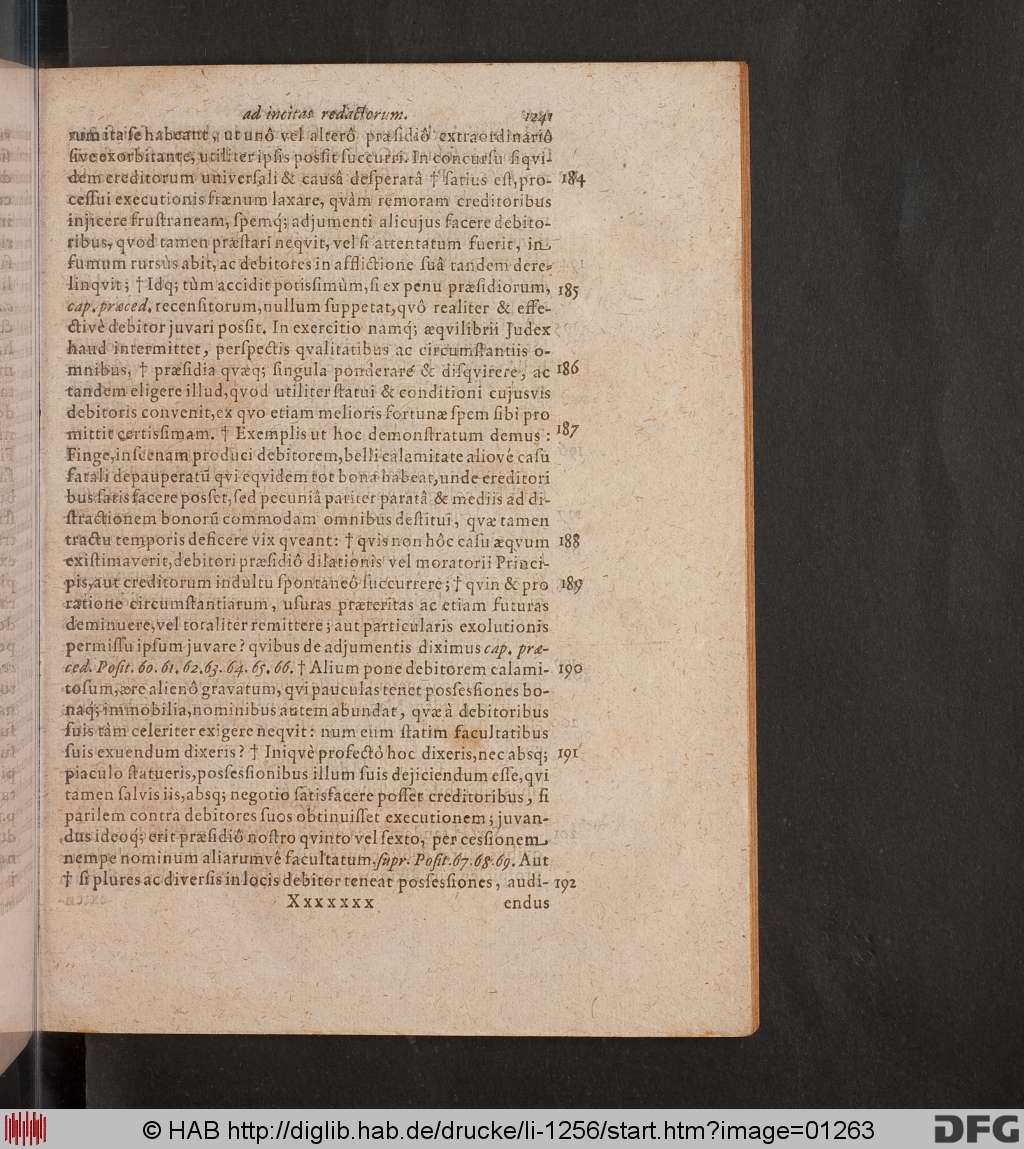 ad incitas redactorum. 1241
rum ita se habeant, ut unô vel alterô præsidiô extraordinariô
sive exorbitante, utiliter ipsis possit succurri. In concursu siqvi-
dem creditorum universali & causâ desperatâ † satius est, pro- 184
cessui executionis frænum laxare, qvàm remoram creditoribus
injicere frustraneam, spemq; adjumenti alicujus facere debito-
ribus, qvod tamen præstari neqvit, vel si attentatum fuerit, in
fumum rursùs abit, ac debitores in afflictione suâ tandem dere-
linqvit; † Idq; tùm accidit potissimùm, si ex penu præsidiorum, 185
cap. præced. recensitorum, nullum suppetat, qvô realiter & effe-
ctivè debitor juvari possit. In exercitio namq; æqvilibrii Judex
haud intermittet, perspectis qvalitatibus ac circumstantiis o-
mnibus, † præsidia qvæq; singula ponderare & disqvirere, ac 186
tandem eligere illud, qvod utiliter statui & conditioni cujusvis
debitoris convenit, ex qvo etiam melioris fortunæ spem sibi pro
mittit certissimam. † Exemplis ut hoc demonstratum demus: 187
Finge, in scenam produci debitorem, belli calamitate aliovè casu
fatali depauperatũ qvi eqvidem tot bona habeat, unde creditori
bus satisfacere posset, sed pecuniâ pariter paratâ & mediis ad di-
stractionem bonorũ commodam omnibus destitui, qvæ tamen
tractu temporis deficere vix qveant: † qvis non hôc casu æqvum 188
existimaverit, debitori præsidiô dilationis vel moratorii Princi-
pis, aut creditorum indultu spontaneô succurrere; † qvin & pro 189
ratione circumstantiarum, usuras præteritas ac etiam futuras
deminuere, vel totaliter remittere; aut particularis exolutionis
permissu ipsum juvare? qvibus de adjumentis diximus cap. præ-
ced. Posit. 60. 61. 62. 63. 64. 65. 66. † Alium pone debitorem calami- 190
tosum, ære alienô gravatum, qvi pauculas tenet possessiones bo-
naq; immobilia, nominibus autem abundat, qvæ à debitoribus
suis tàm celeriter exigere neqvit: num eum statim facultatibus
suis exuendum dixeris? † Iniqvè profectò hoc dixeris, nec absq; 191
piaculo statueris, possessionibus illum suis dejiciendum esse, qvi
tamen salvis iis, absq; negotio satisfacere posset creditoribus, si
parilem contra debitores suos obtinuisset executionem; juvan-
dus ideoq; erit præsidiô nostro qvinto vel sexto, per cessionem
nempe nominum aliarumvè facultatum, supr. Posit. 67. 68. 69. Aut
† si plures ac diversis in locis debitor teneat possessiones, audi- 192
Xxxxxxx endus
© HAB http://diglib.hab.de/drucke/li-1256/start.htm?image=01263
DFG